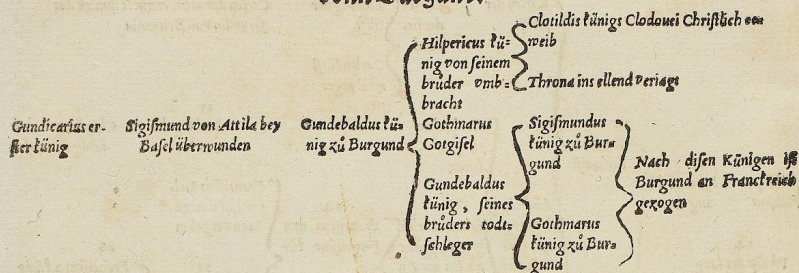 Gundicarius er-
ster künig
Sigismund von Attila bey
Basel überwunden
Gundebaldus kü-
nig zů Burgund
Hilpericus kü-
nig von seinem
brůder vmb-
bracht
Gothmarus
Gotgisel
Gundebaldus
künig, seines
brůders todt-
schleger
Clotildis künigs Clodouei Christlich
weib
Throna ins ellend veriagt
Sigismundus
künig zů Bur-
gund
Gothmarus
künig zů Bur-
gund
Nach disen Künigen ist
Burgund an Franckreich
gezogen